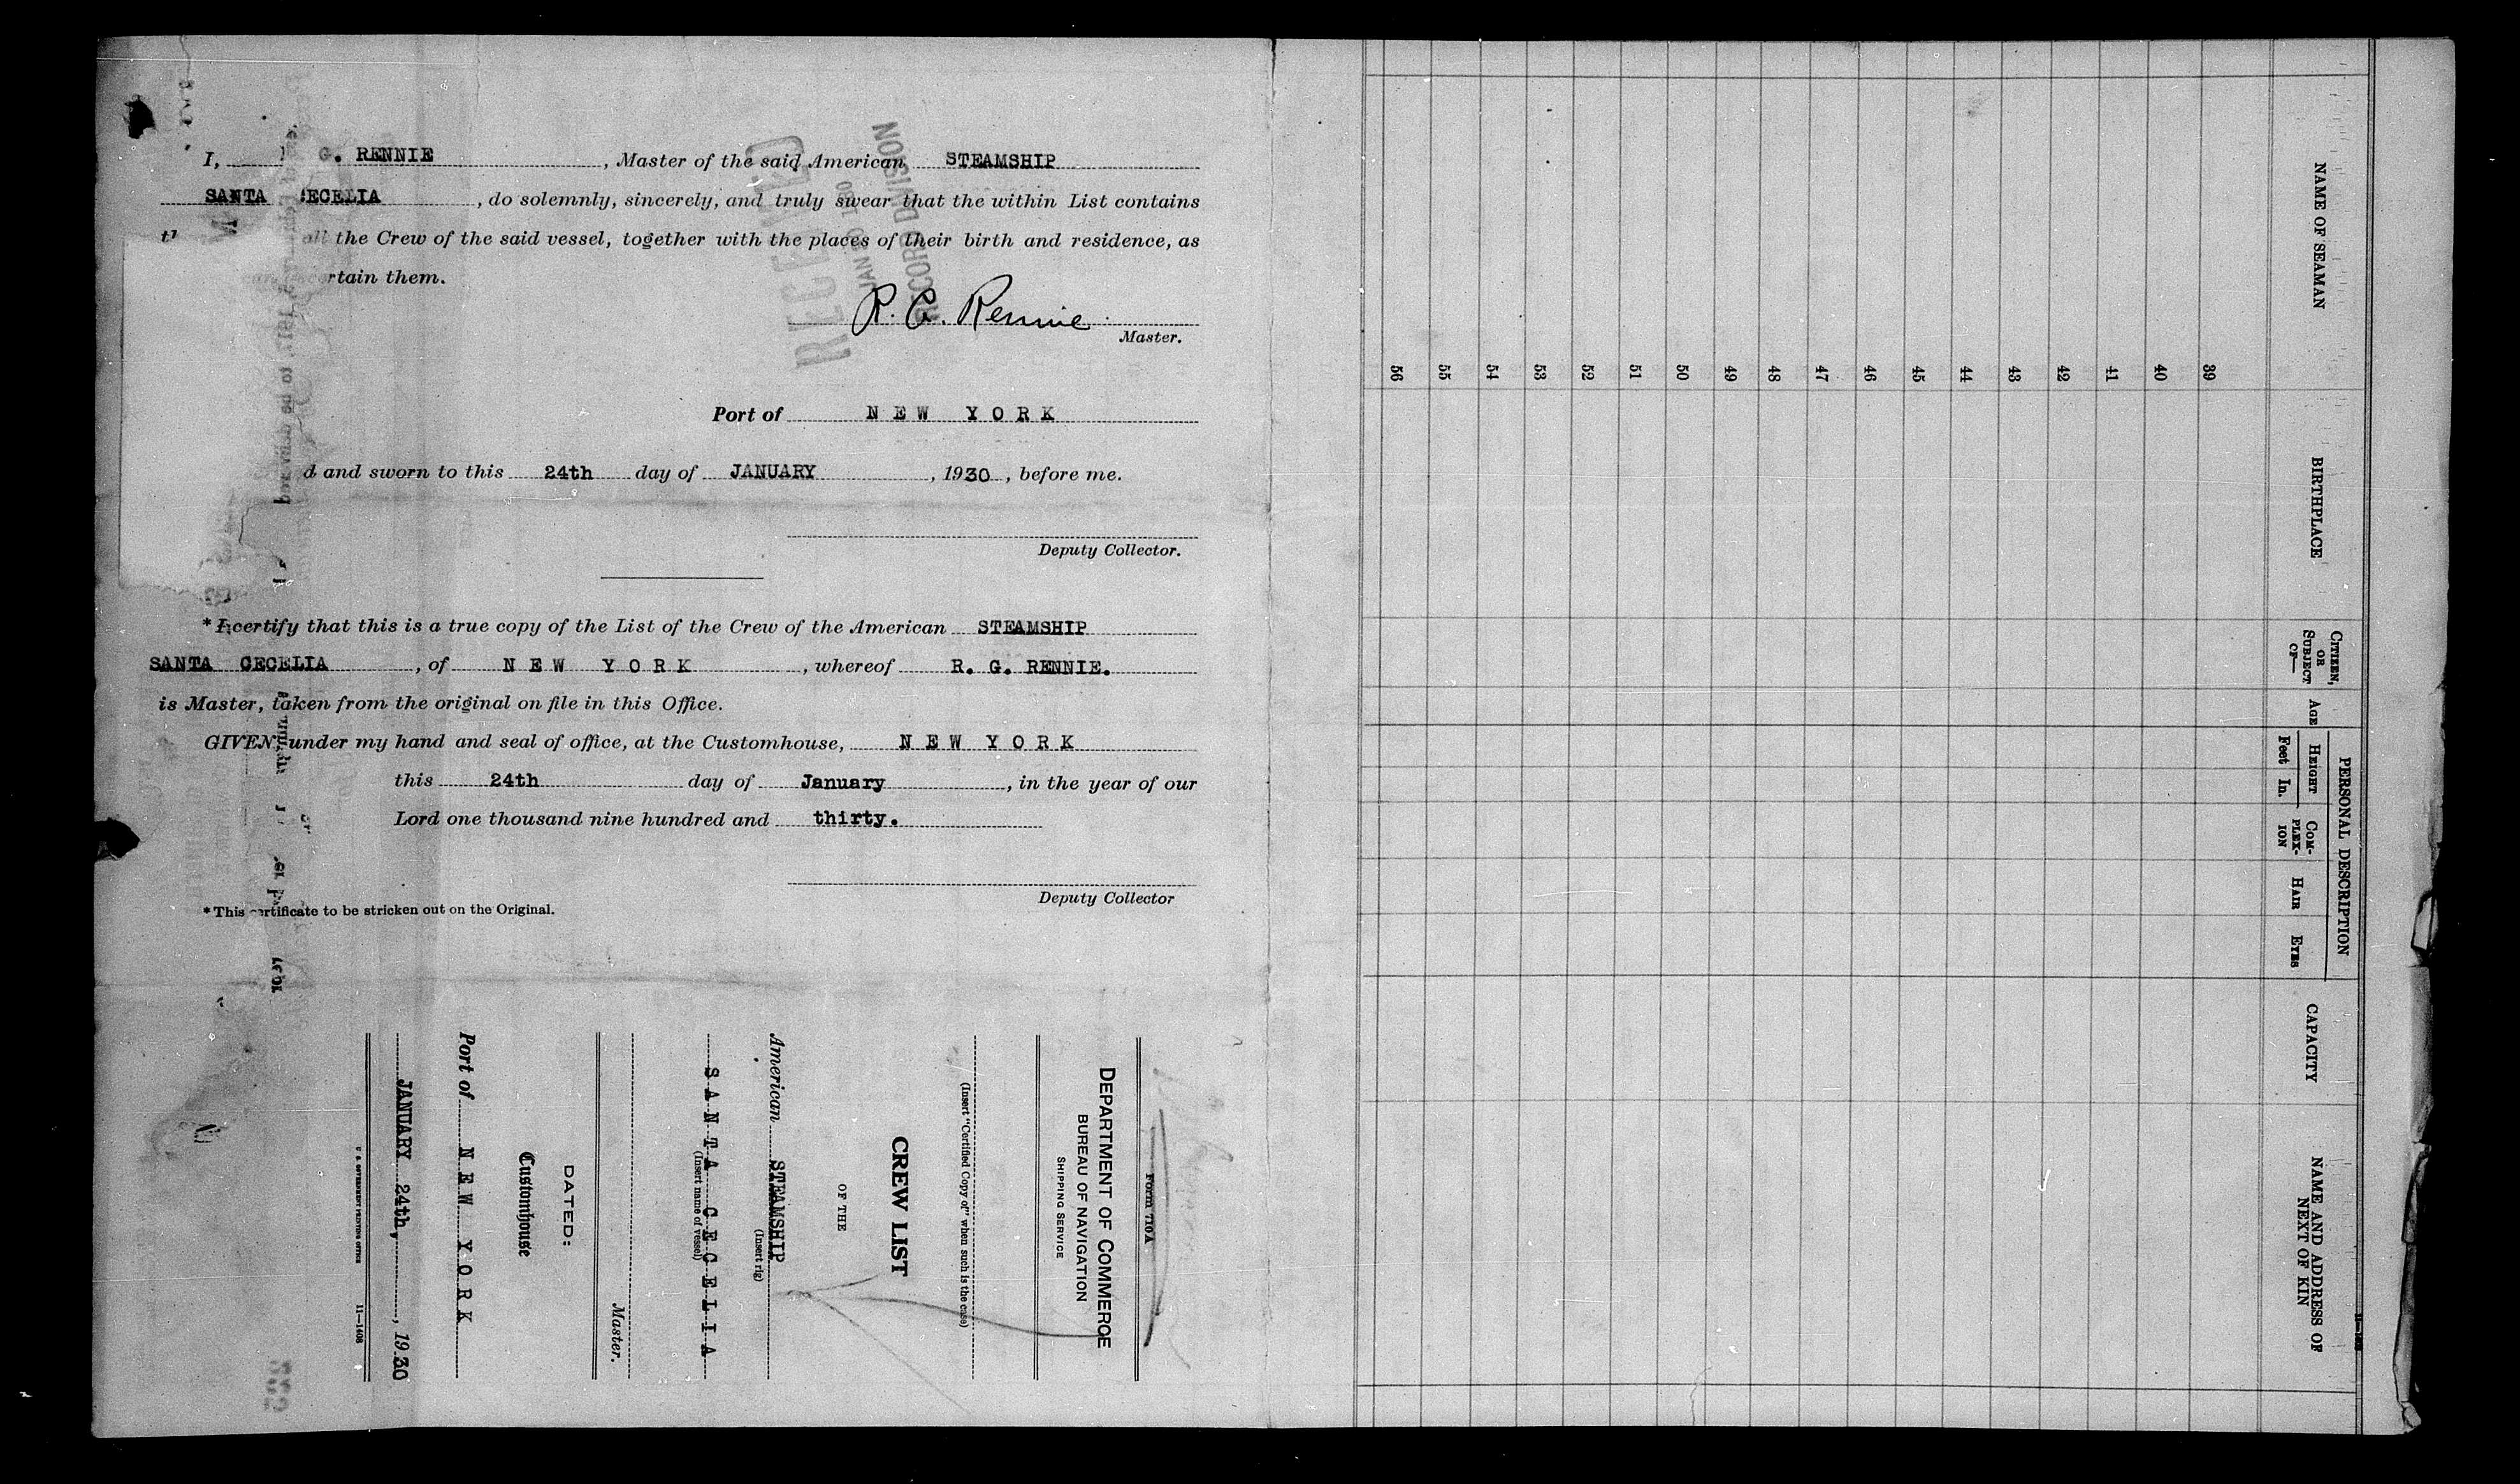 I, G. RENNIE, Master of the said American STEAMSHIP
SANTA CECELIA, do solemnly, sincerely, and truly swear that the within List contains
all the Crew of the said vessel, together with the places of their birth and residence, as
rtain them.
R. G. Rennie
Master.
RECEIVED
JAN 30 1930
RECORD DIVISION
Port of NEW YORK
d and sworn to this 24th day of JANUARY, 1930, before me.
Deputy Collector.
* I certify that this is a true copy of the List of the Crew of the American STEAMSHIP
SANTA CECELIA, of NEW YORK, whereof R. G. RENNIE.
is Master, taken from the original on file in this Office.
GIVEN under my hand and seal of office, at the Customhouse, NEW YORK
this 24th day of January, in the year of our
Lord one thousand nine hundred and thirty.
Deputy Collector
* This certificate to be stricken out on the Original.
Form 710A
DEPARTMENT OF COMMERCE
BUREAU OF NAVIGATION
SHIPPING SERVICE
(Insert "Certified Copy of" when such is the case)
CREW LIST
OF THE
American STEAMSHIP
(Insert rig)
SANTA CECELIA
(Insert name of vessel)
Master.
DATED:
Customhouse
Port of NEW YORK
JANUARY 24th, 1930
U. S. GOVERNMENT PRINTING OFFICE 11—1408
NAME OF SEAMAN
BIRTHPLACE
CITIZEN, OR SUBJECT OF—
AGE
PERSONAL DESCRIPTION
HEIGHT
Feet In.
COMPLEX-ION
HAIR
EYES
CAPACITY
NAME AND ADDRESS OF NEXT OF KIN
39
40
41
42
43
44
45
46
47
48
49
50
51
52
53
54
55
56